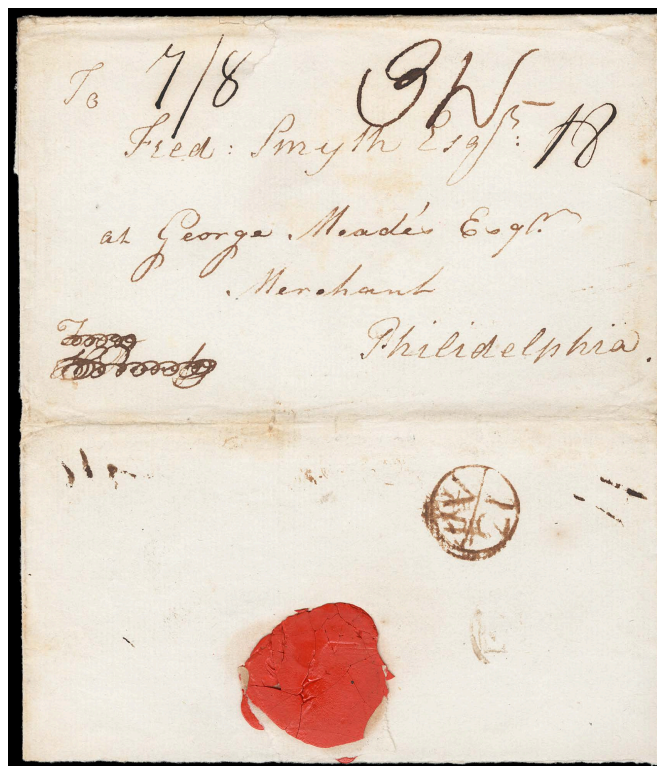 To 7/8 3
Fred: Smyth Esqr: 18
at George Meade's Esqr.
Merchant
Philidelphia.